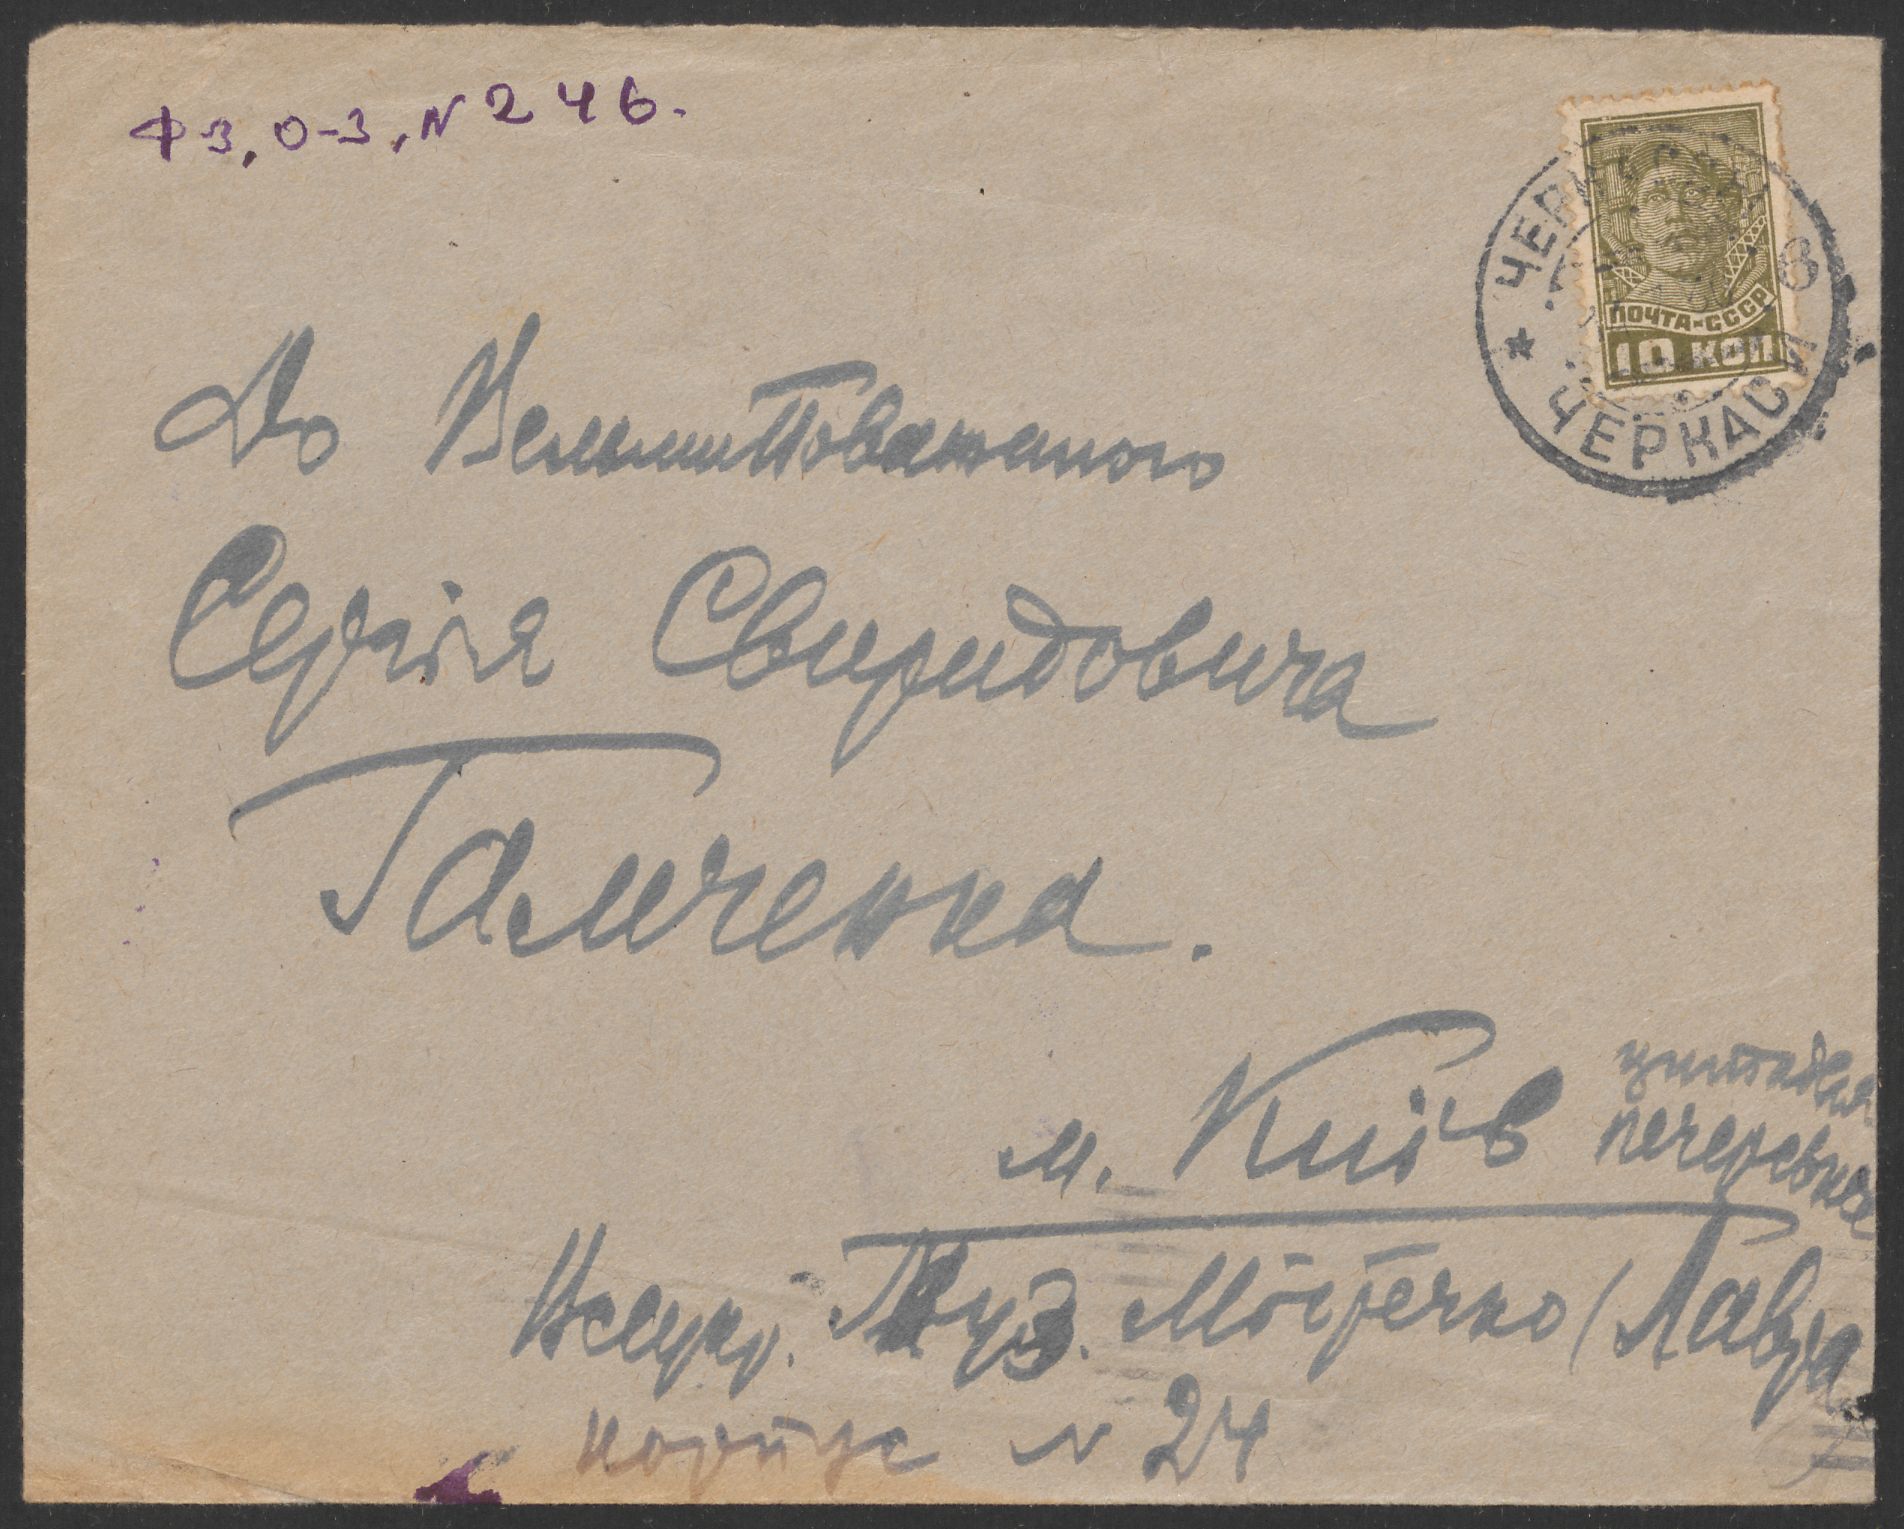 Ф 3, О-3, N 246.
ЧЕРКАССЫ
ПОЧТА-СССР
10 КОП.
ЧЕРКАСИ
До Вельмиповажаного
Сергія Свиридовича
Гамченка.
м. Київ
цитадель
печерська
Всеукр. Муз. Містечко (Лавра
корпус N 24